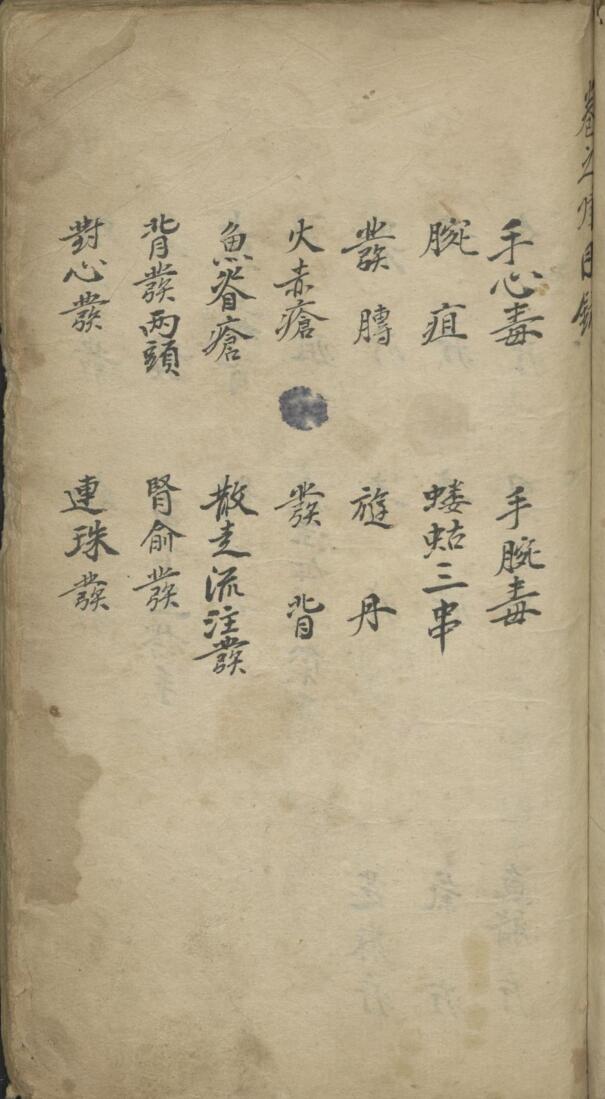 卷之目錄
手心毒 手腕毒
腕疽 蝼蛄三串
發膞 遊丹
火赤瘡 發背
魚脊瘡 散走流注發
背發两頭 腎俞發
對心發 連珠發